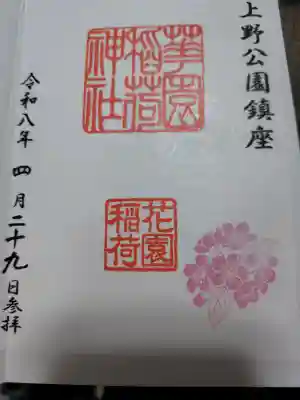 上野公園鎮座
華園
稲荷
神社
花園
稲荷
令和八年 四月二十九日参拝